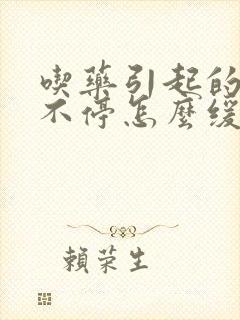 喫藥引起的
不停怎麼緩
賴荣生